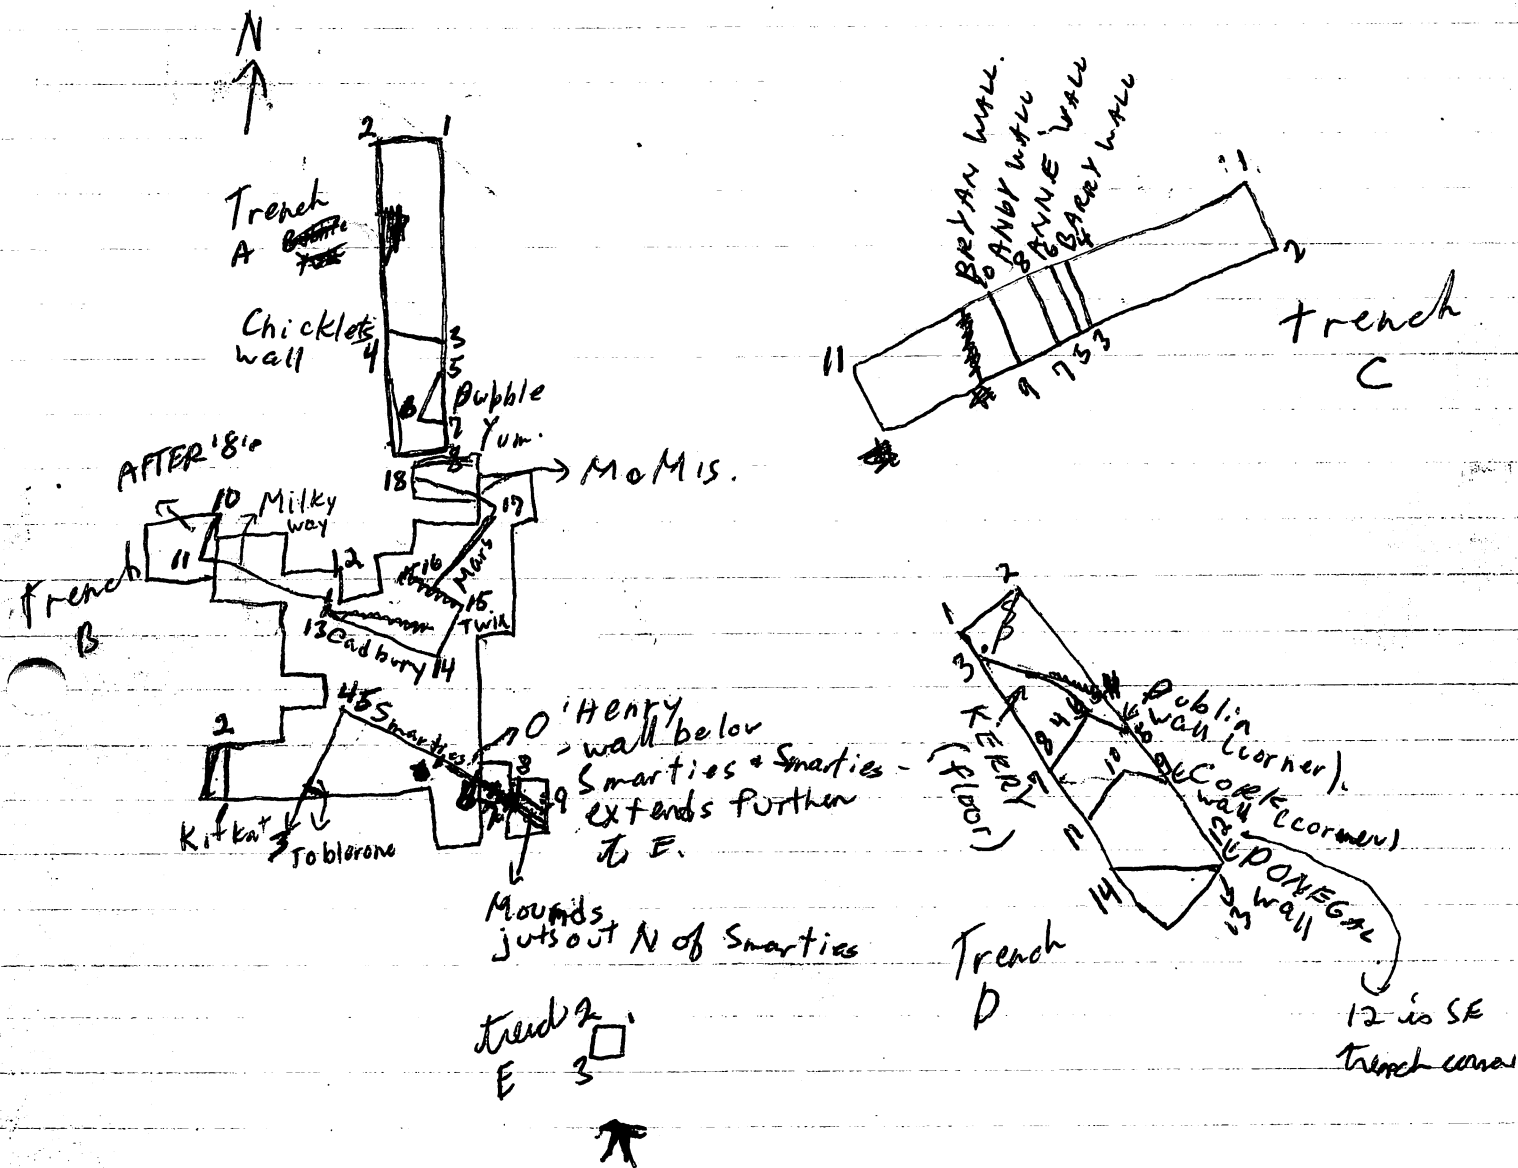 N
2 1
Trench
A
Chicklets 3
wall 4
5
Bubble
7
Yum.
8
18
M&M's.
17
AFTER '8's
10
Milky
way
11
12
16
Mars
15
Twix
13 Cadbury
14
Trench
B
45 Smarties
2
KitKat
3 Toblerone
8
9
O 'Henry
- wall below
Smarties & Smarties -
extends further
to E.
Mounds
juts out N of Smarties
trench 2 1
E 3
BRYAN WALL.
ANDY WALL
ANNE WALL
BARRY WALL
10 8 6 4
1
2
11
9 7 5 3
trench
C
2
1
3
KERRY
(floor)
4
8
Dublin
wall (corner).
10
9
CORK
wall (corner)
12
DONEGAL
wall
13
14
Trench
D
12 is SE
trench corner